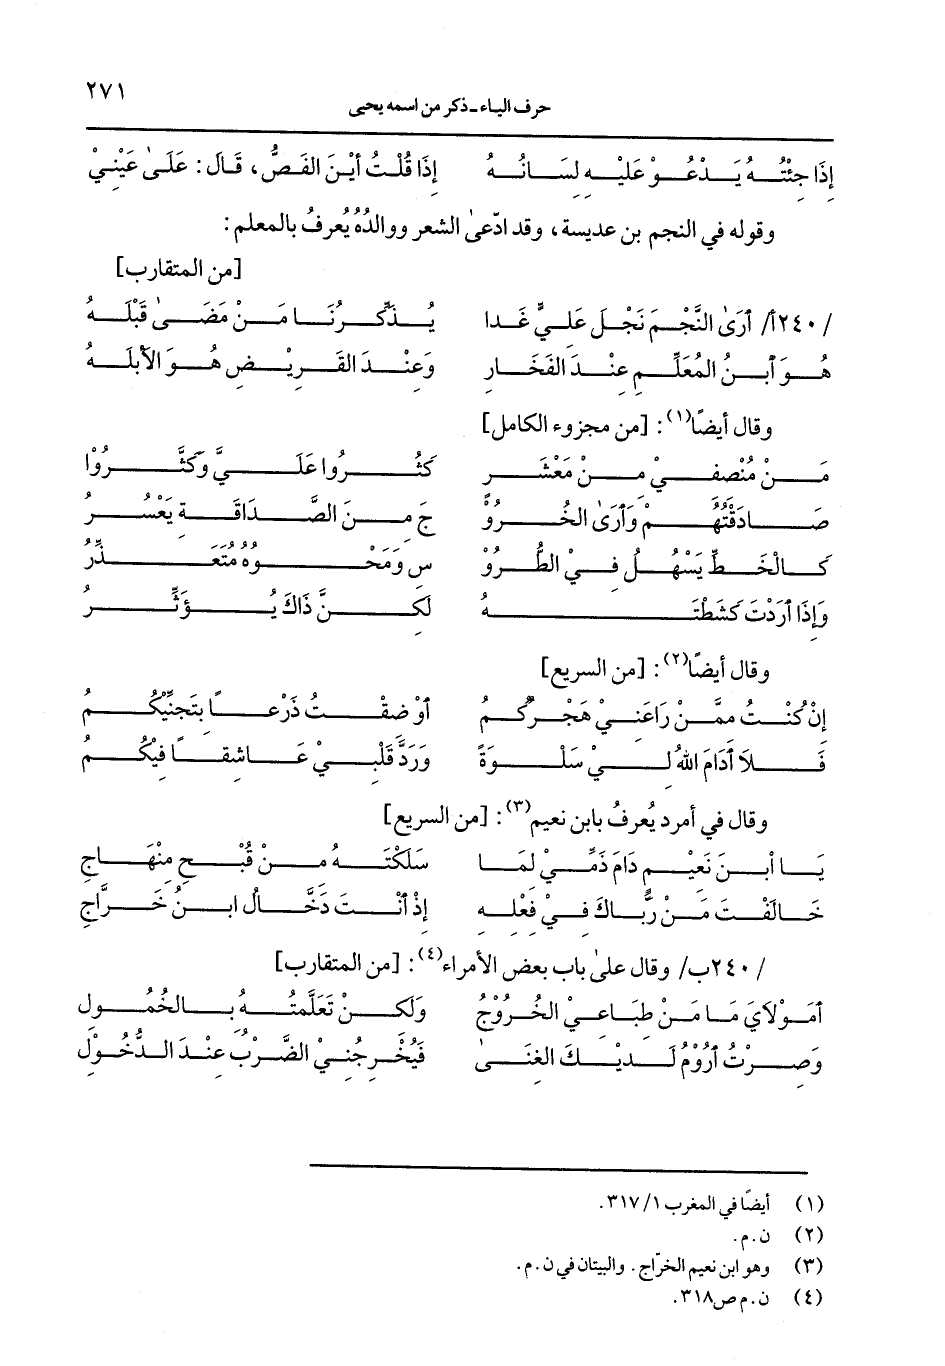 حرف الياء ـ ذكر من اسمه يحيى ٢٧١
إِذَا جِئْتُهُ يَدْعُوْ عَلَيْهِ لِسَانُهُ إِذَا قُلْتُ أَيْنَ الفَصُّ، قَالَ: عَلَىٰ عَيْنِيْ
وقوله في النجم بن عديسة، وقد ادّعىٰ الشعر ووالدُهُ يُعرفُ بالمعلم:
[من المتقارب]
/٢٤٠أ/ أَرَىٰ النَّجْمَ نَجْلَ عَلِيٍّ غَدا يُذَكِّرُنَا مَنْ مَضَىٰ قَبْلَهُ
هُوَ ٱبنُ المُعَلِّمِ عِنْدَ الفَخَارِ وَعِنْدَ القَرِيْضِ هُوَ الأَبلَهُ
وقال أيضًا(١): [من مجزوء الكامل]
مَنْ مُنْصِفِيْ مِنْ مَعْشَرٍ كَثُرُوا عَلَيَّ وَكَثَّرُوْا
صَادَقْتُهُمْ وَأَرَىٰ الخُرُوْ جَ مِنَ الصَّدَاقَةِ يَعْسُرُ
كَالخَطِّ يَسْهُلُ فِيْ الطُّرُوْ سِ وَمَحْوُهُ مُتَعَذِّرُ
وَإِذَا أَرَدْتَ كَشَطْتَهُ لَكِنَّ ذَاكَ يُؤَثِّرُ
وقال أيضًا(٢): [من السريع]
إِنْ كُنْتُ مِمَّنْ رَاعَنِيْ هَجْرُكُمُ أَوْ ضِقْتُ ذَرْعًا بِتَجَنِّيْكُمُ
فَلَا أَدَامَ اللهُ لِيْ سَلْوَةً وَرَدَّ قَلْبِيْ عَاشِقًا فِيْكُمُ
وقال في أمرد يُعرفُ بابن نعيم(٣): [من السريع]
يَا ٱبنَ نَعِيْمٍ دَامَ ذَمِّيْ لِمَا سَلَكْتَهُ مِنْ قُبْحِ مِنْهَاجِ
خَالَفْتَ مَنْ رَبَّاكَ فِيْ فِعْلِهِ إِذْ أَنْتَ دَخَّالُ ابنُ خَرَّاجِ
/٢٤٠ب/ وقال علىٰ باب بعض الأمراء(٤): [من المتقارب]
أَمَوْلَايَ مَا مَنْ طِبَاعِيْ الخُرُوْجُ وَلَكِنْ تَعَلَّمتُهُ بِالخُمُولِ
وَصِرْتُ أَرُوْمُ لَدِيْكَ الغِنَىٰ فَيُخْرِجُنِيْ الضَّرْبُ عِنْدَ الدُّخُوْلِ
(١) أيضًا في المغرب ٣١٧/١.
(٢) ن.م.
(٣) وهو ابن نعيم الخرّاج. والبيتان في ن.م.
(٤) ن.م ص٣١٨.